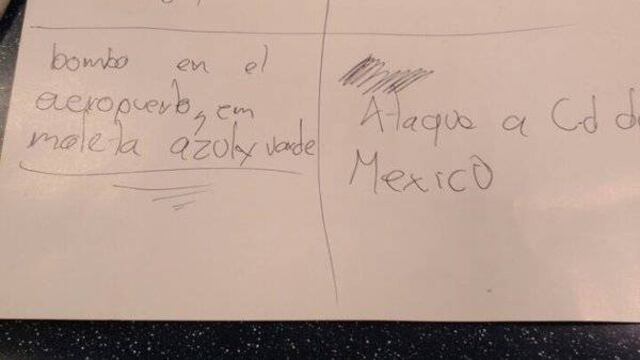 bomba en el
aeropuerto, em
maleta azul y verde
Ataque a Cd de
Mexico